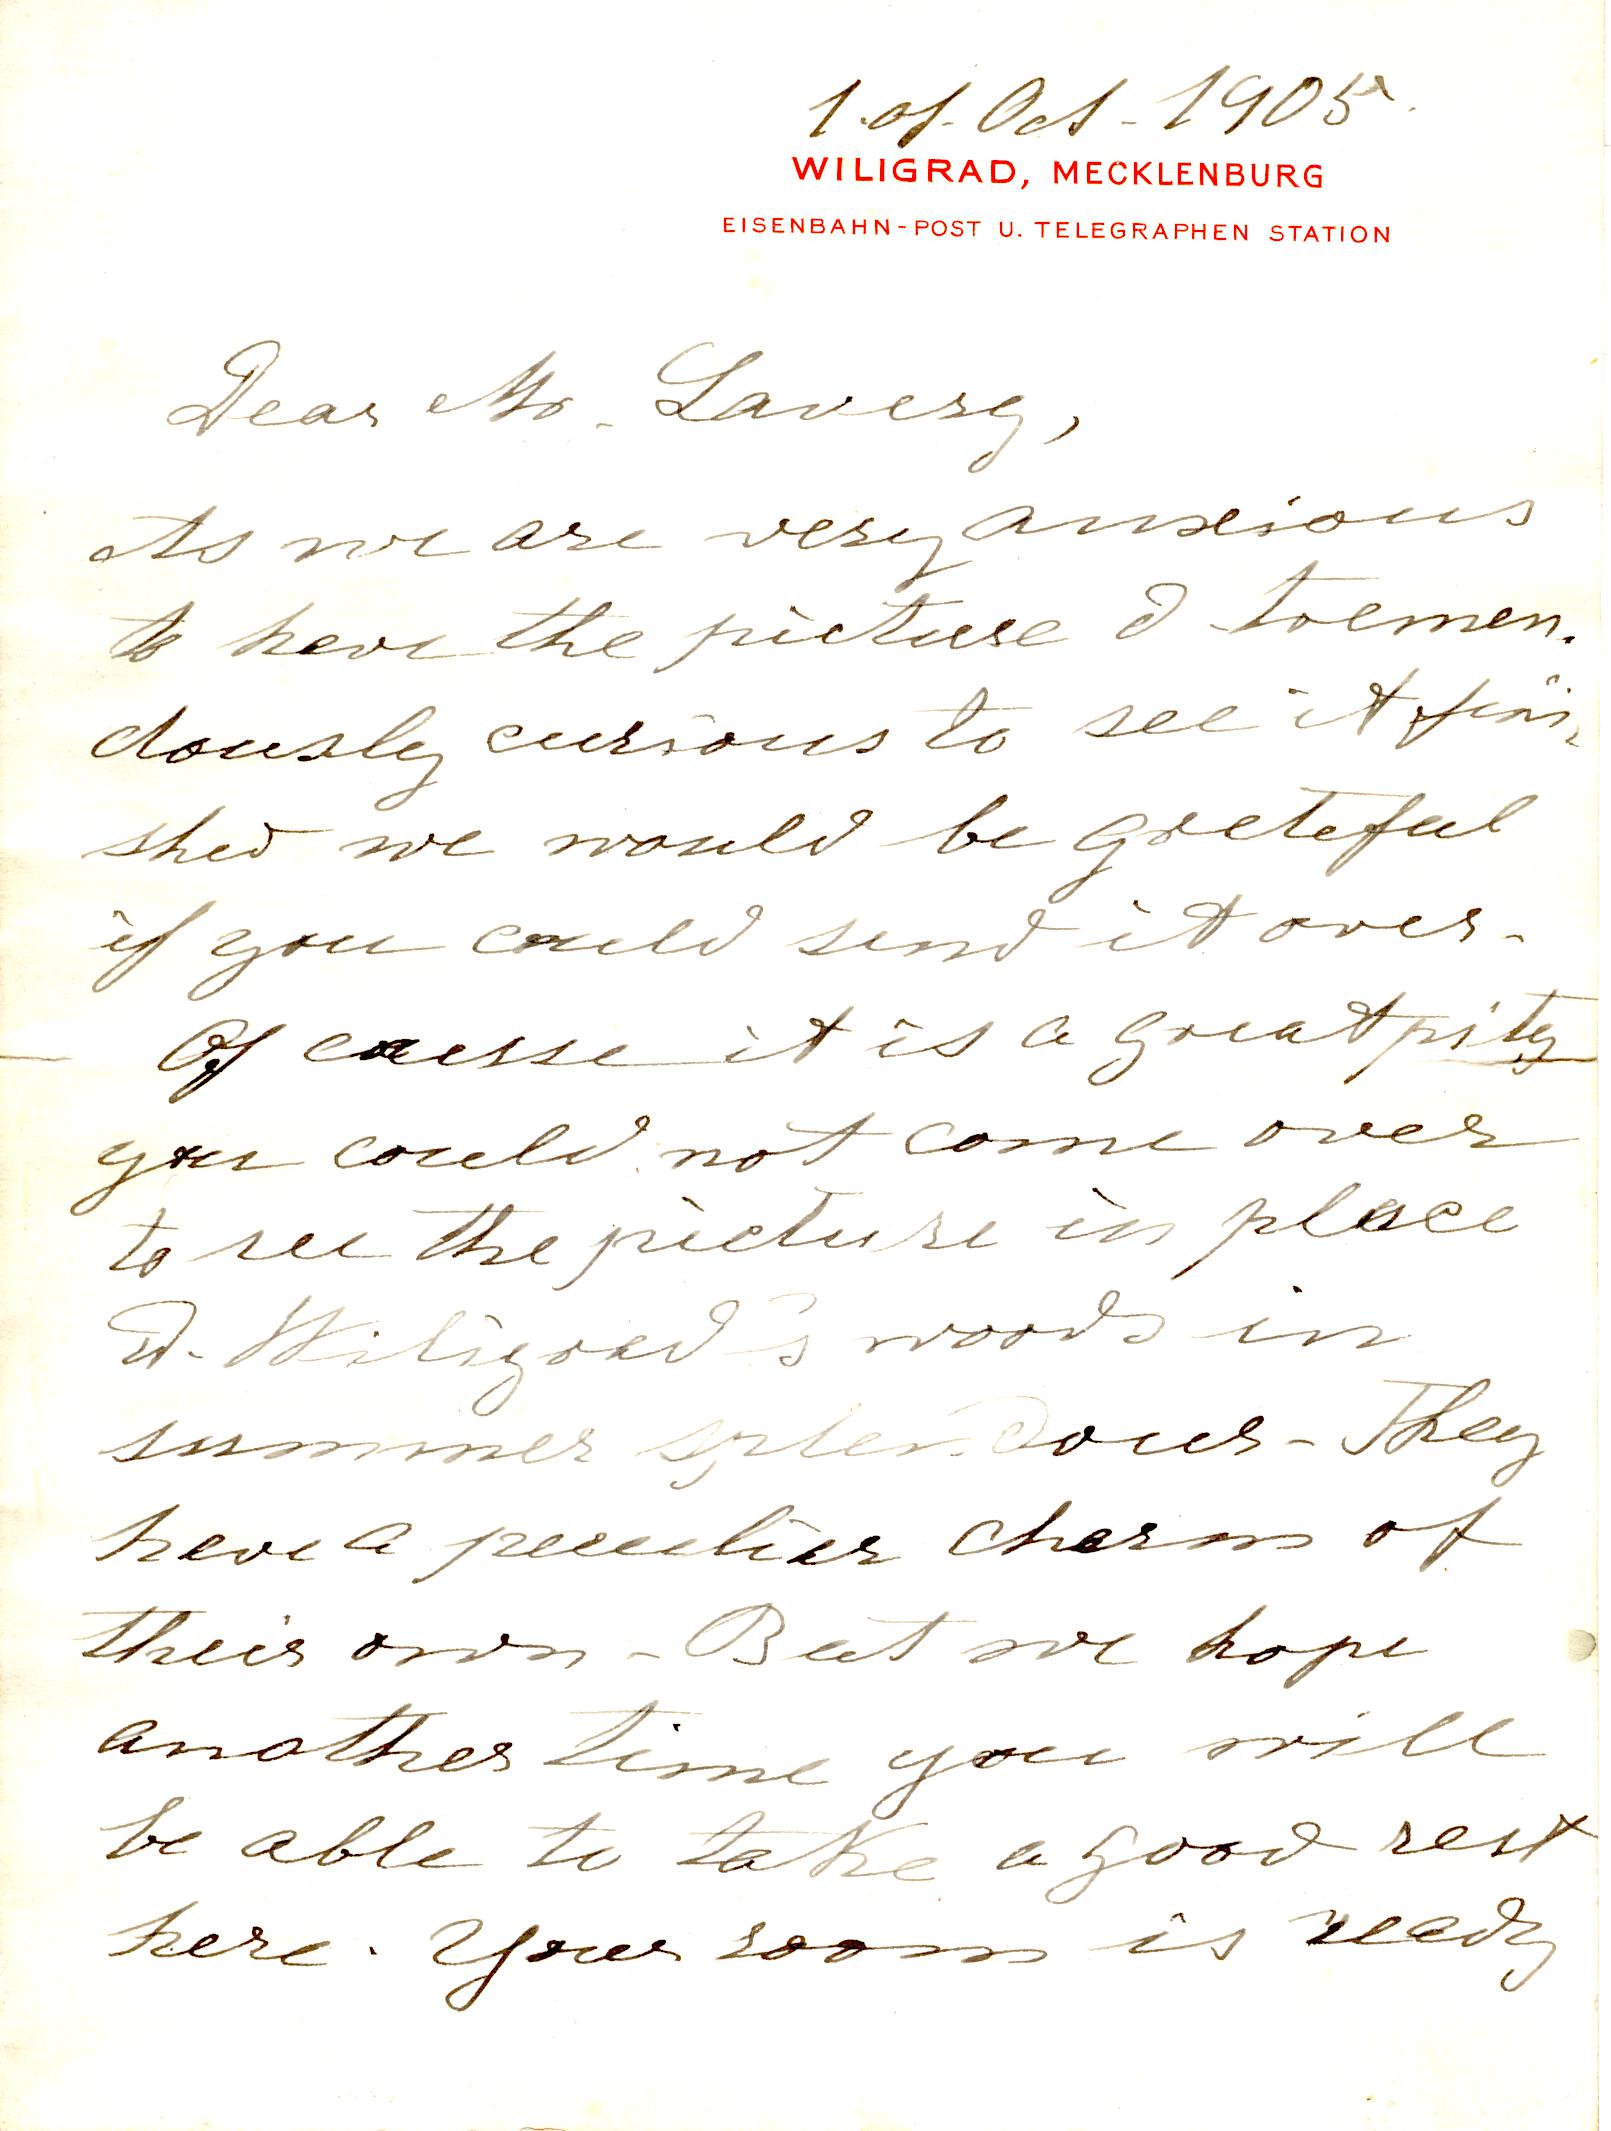 1. of. Oct - 1905.
WILIGRAD, MECKLENBURG
EISENBAHN-POST U. TELEGRAPHEN STATION
Dear Mr. Lavery,
As we are very anxious
to have the picture & tremen-
dously curious to see it fini-
shed we would be grateful
if you could send it over -
Of course it is a great pity
you could not come over
to see the picture in place
& Wiligrad's woods in
summer splendour - They
have a peculiar charm of
their own - But we hope
another time you will
be able to take a good rest
here. Your room is ready